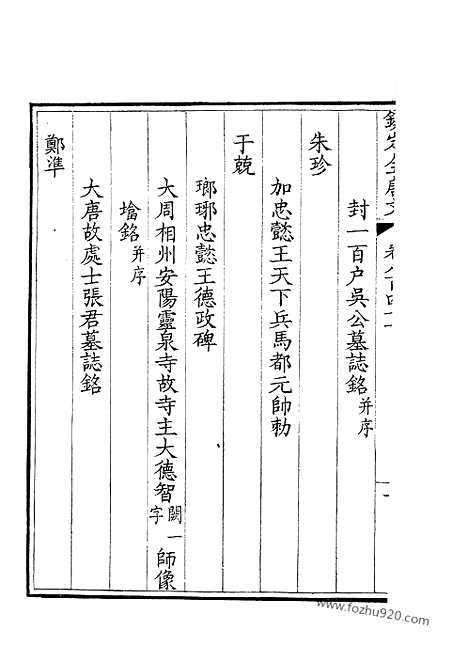 欽定全唐文
封一百户吳公墓誌銘并序
朱珍
加忠懿王天下兵馬都元帥勅
于兢
瑯琊忠懿王德政碑
大周相州安陽靈泉寺故寺主大德智闕一字師像
墖銘并序
大唐故處士張君墓誌銘
鄭準
www.fozhu920.com